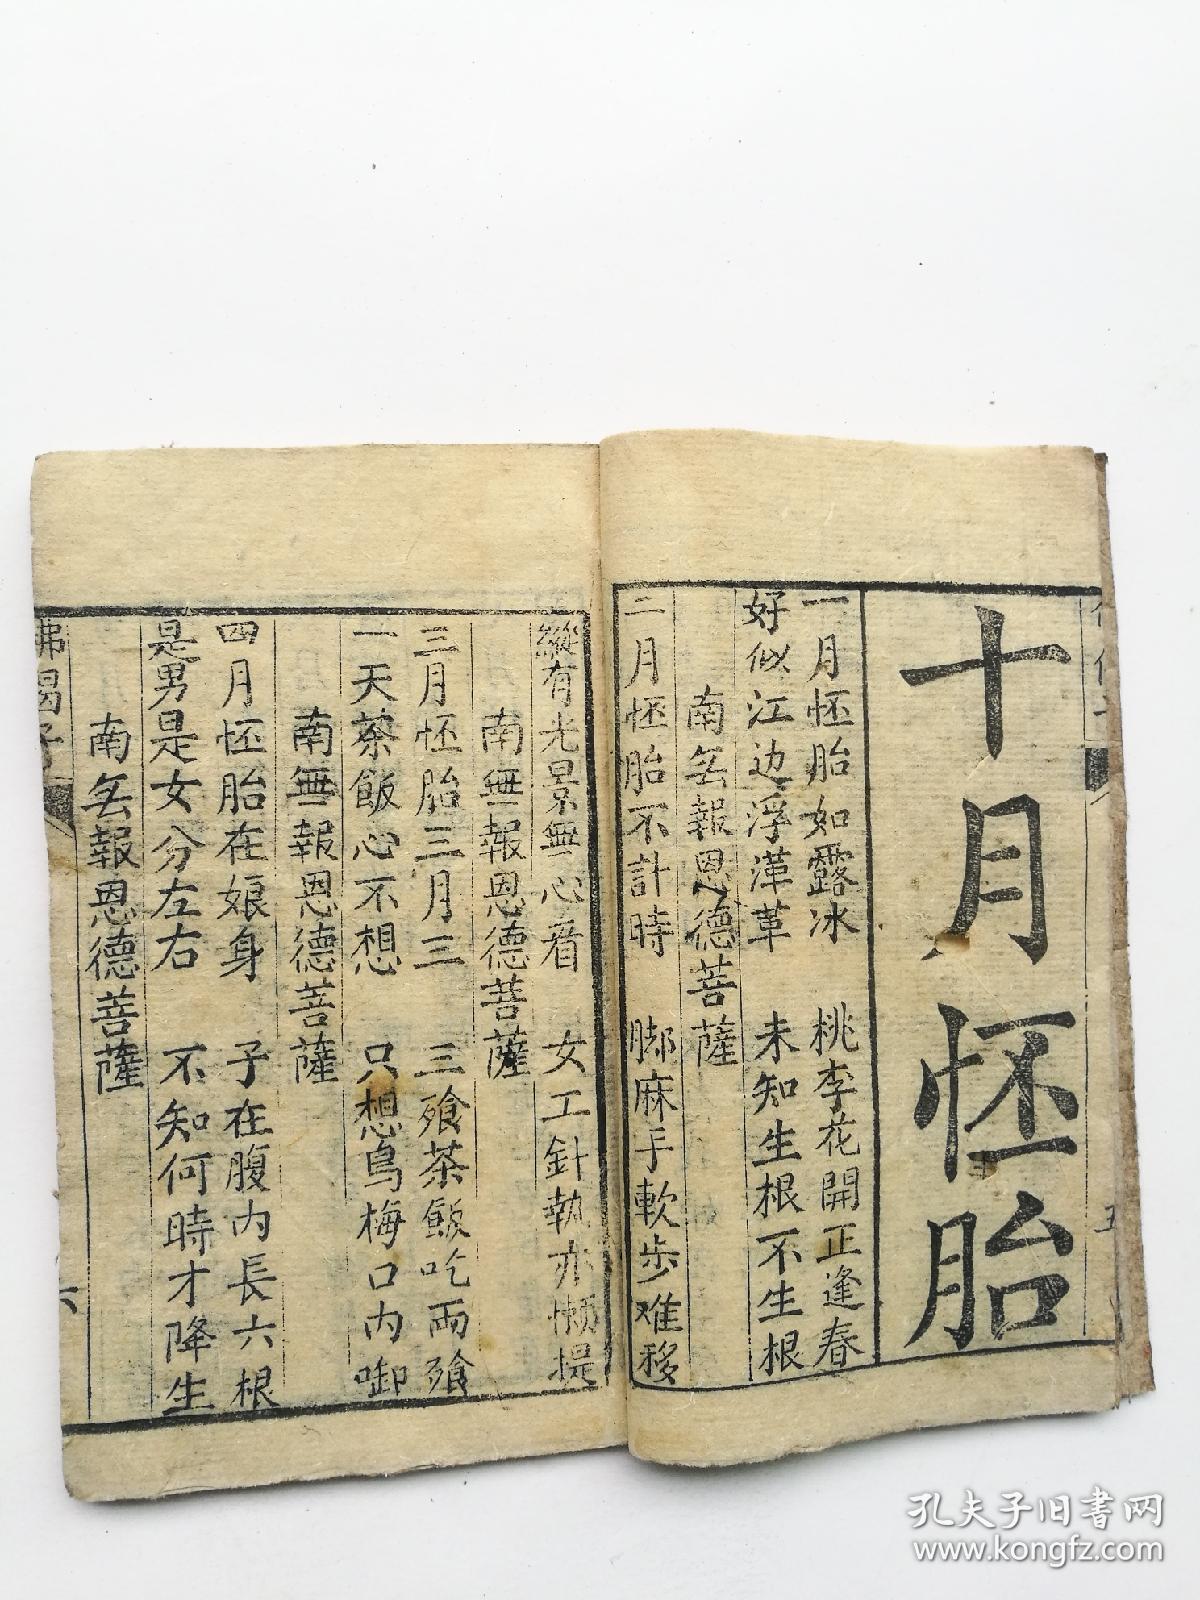 十月怀胎
一月怀胎如露冰　桃李花開正逢春
好似江边浮萍革　未知生根不生根
南无報恩德菩薩
二月怀胎不計時　脚麻手軟步难移
縱有光景無心看　女工針執亦懒提
南無報恩德菩薩
三月怀胎三月三　三飱茶飯吃两飱
一天茶飯心不想　只想烏梅口内啣
南無報恩德菩薩
四月怀胎在娘身　子在腹内長六根
是男是女分左右　不知何時才降生
南无報恩德菩薩
佛偈子
六
五
孔夫子旧书网
www.kongfz.com